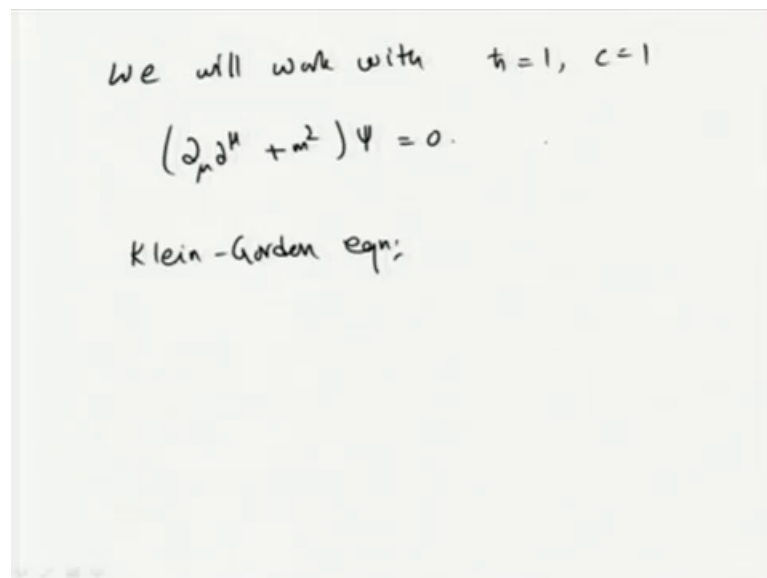 we will work with ħ = 1, c = 1
(∂_μ ∂^μ + m²) ψ = 0.
Klein-Gordon eqn: